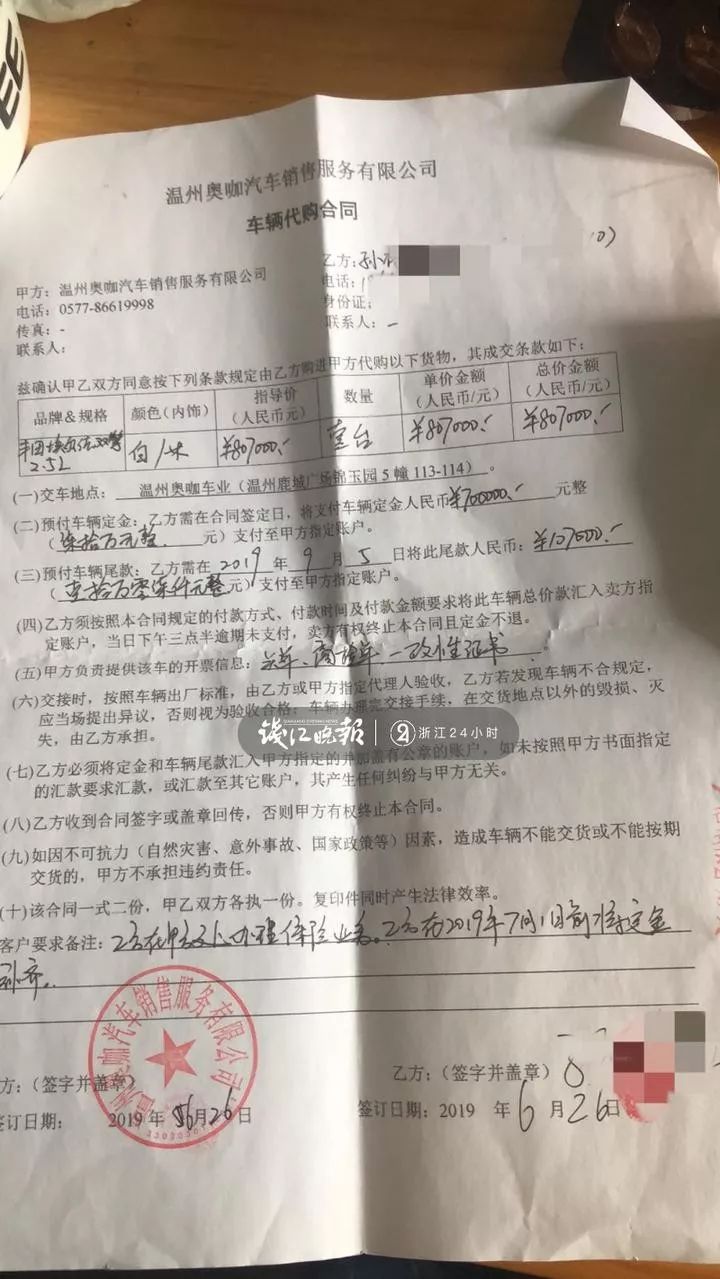 EE
温州奥咖汽车销售服务有限公司
车辆代购合同
甲方：温州奥咖汽车销售服务有限公司
电话：0577-86619998
传真：-
联系人：
乙方：孙
电话：1
身份证：
联系人：-
兹确认甲乙双方同意按下列条款规定由乙方购进甲方代购以下货物，其成交条款如下：
品牌＆规格 颜色（内饰） 指导价（人民币/元） 数量 单价金额（人民币/元） 总价金额（人民币/元）
丰田埃尔法双擎 2.5L 白/米 ¥807000.- 壹台 ¥807000.- ¥807000.-
(一)交车地点： 温州奥咖车业（温州鹿城广场锦玉园5幢113-114）。
(二)预付车辆定金：乙方需在合同签定日，将支付车辆定金人民币¥700000.- 元整
（柒拾万元整 元）支付至甲方指定账户。
(三)预付车辆尾款：乙方需在 2019 年 9 月 5 日将此尾款人民币：¥107000.-
（壹拾万零柒仟元整元）支付至甲方指定账户。
(四)乙方须按照本合同规定的付款方式、付款时间及付款金额要求将此车辆总价款汇入卖方指
定账户，当日下午三点半逾期未支付，卖方有权终止本合同且定金不退。
(五)甲方负责提供该车的开票信息：关单、商检单、一致性证书。
(六)交接时，按照车辆出厂标准，由乙方或甲方指定代理人验收，乙方若发现车辆不合规定，
应当场提出异议，否则视为验收合格；车辆办理完交接手续，在交货地点以外的毁损、灭
失，由乙方承担。
钱江晚报 浙江24小时
(七)乙方必须将定金和车辆尾款汇入甲方指定的并加盖有公章的账户，如未按照甲方书面指定
的汇款要求汇款，或汇款至其它账户，其产生任何纠纷与甲方无关。
(八)乙方收到合同签字或盖章回传，否则甲方有权终止本合同。
(九)如因不可抗力（自然灾害、意外事故、国家政策等）因素，造成车辆不能交货或不能按期
交货的，甲方不承担违约责任。
(十)该合同一式二份，甲乙双方各执一份。复印件同时产生法律效率。
客户要求备注：乙方在甲方处办理保险业务。乙方在2019年7月1日前将定金
补齐。
温州奥咖汽车销售服务有限公司
方：（签字并盖章）
签订日期： 2019 年 06月26日
乙方：（签字并盖章）
签订日期：2019 年 6 月 26日